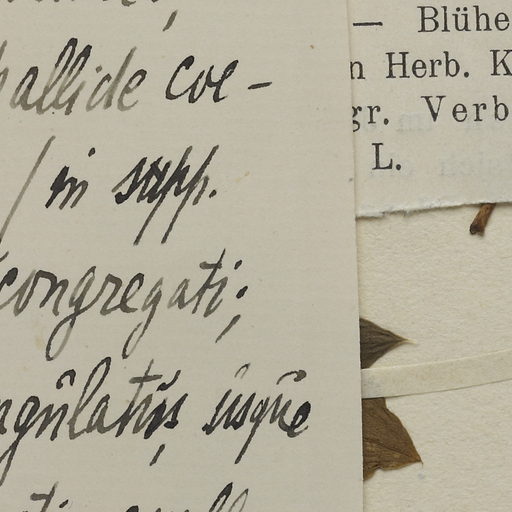 pallide coe-
/ in supp.
congregati;
ngulatus, usque
— Blühe
n Herb. K
gr. Verb
L.